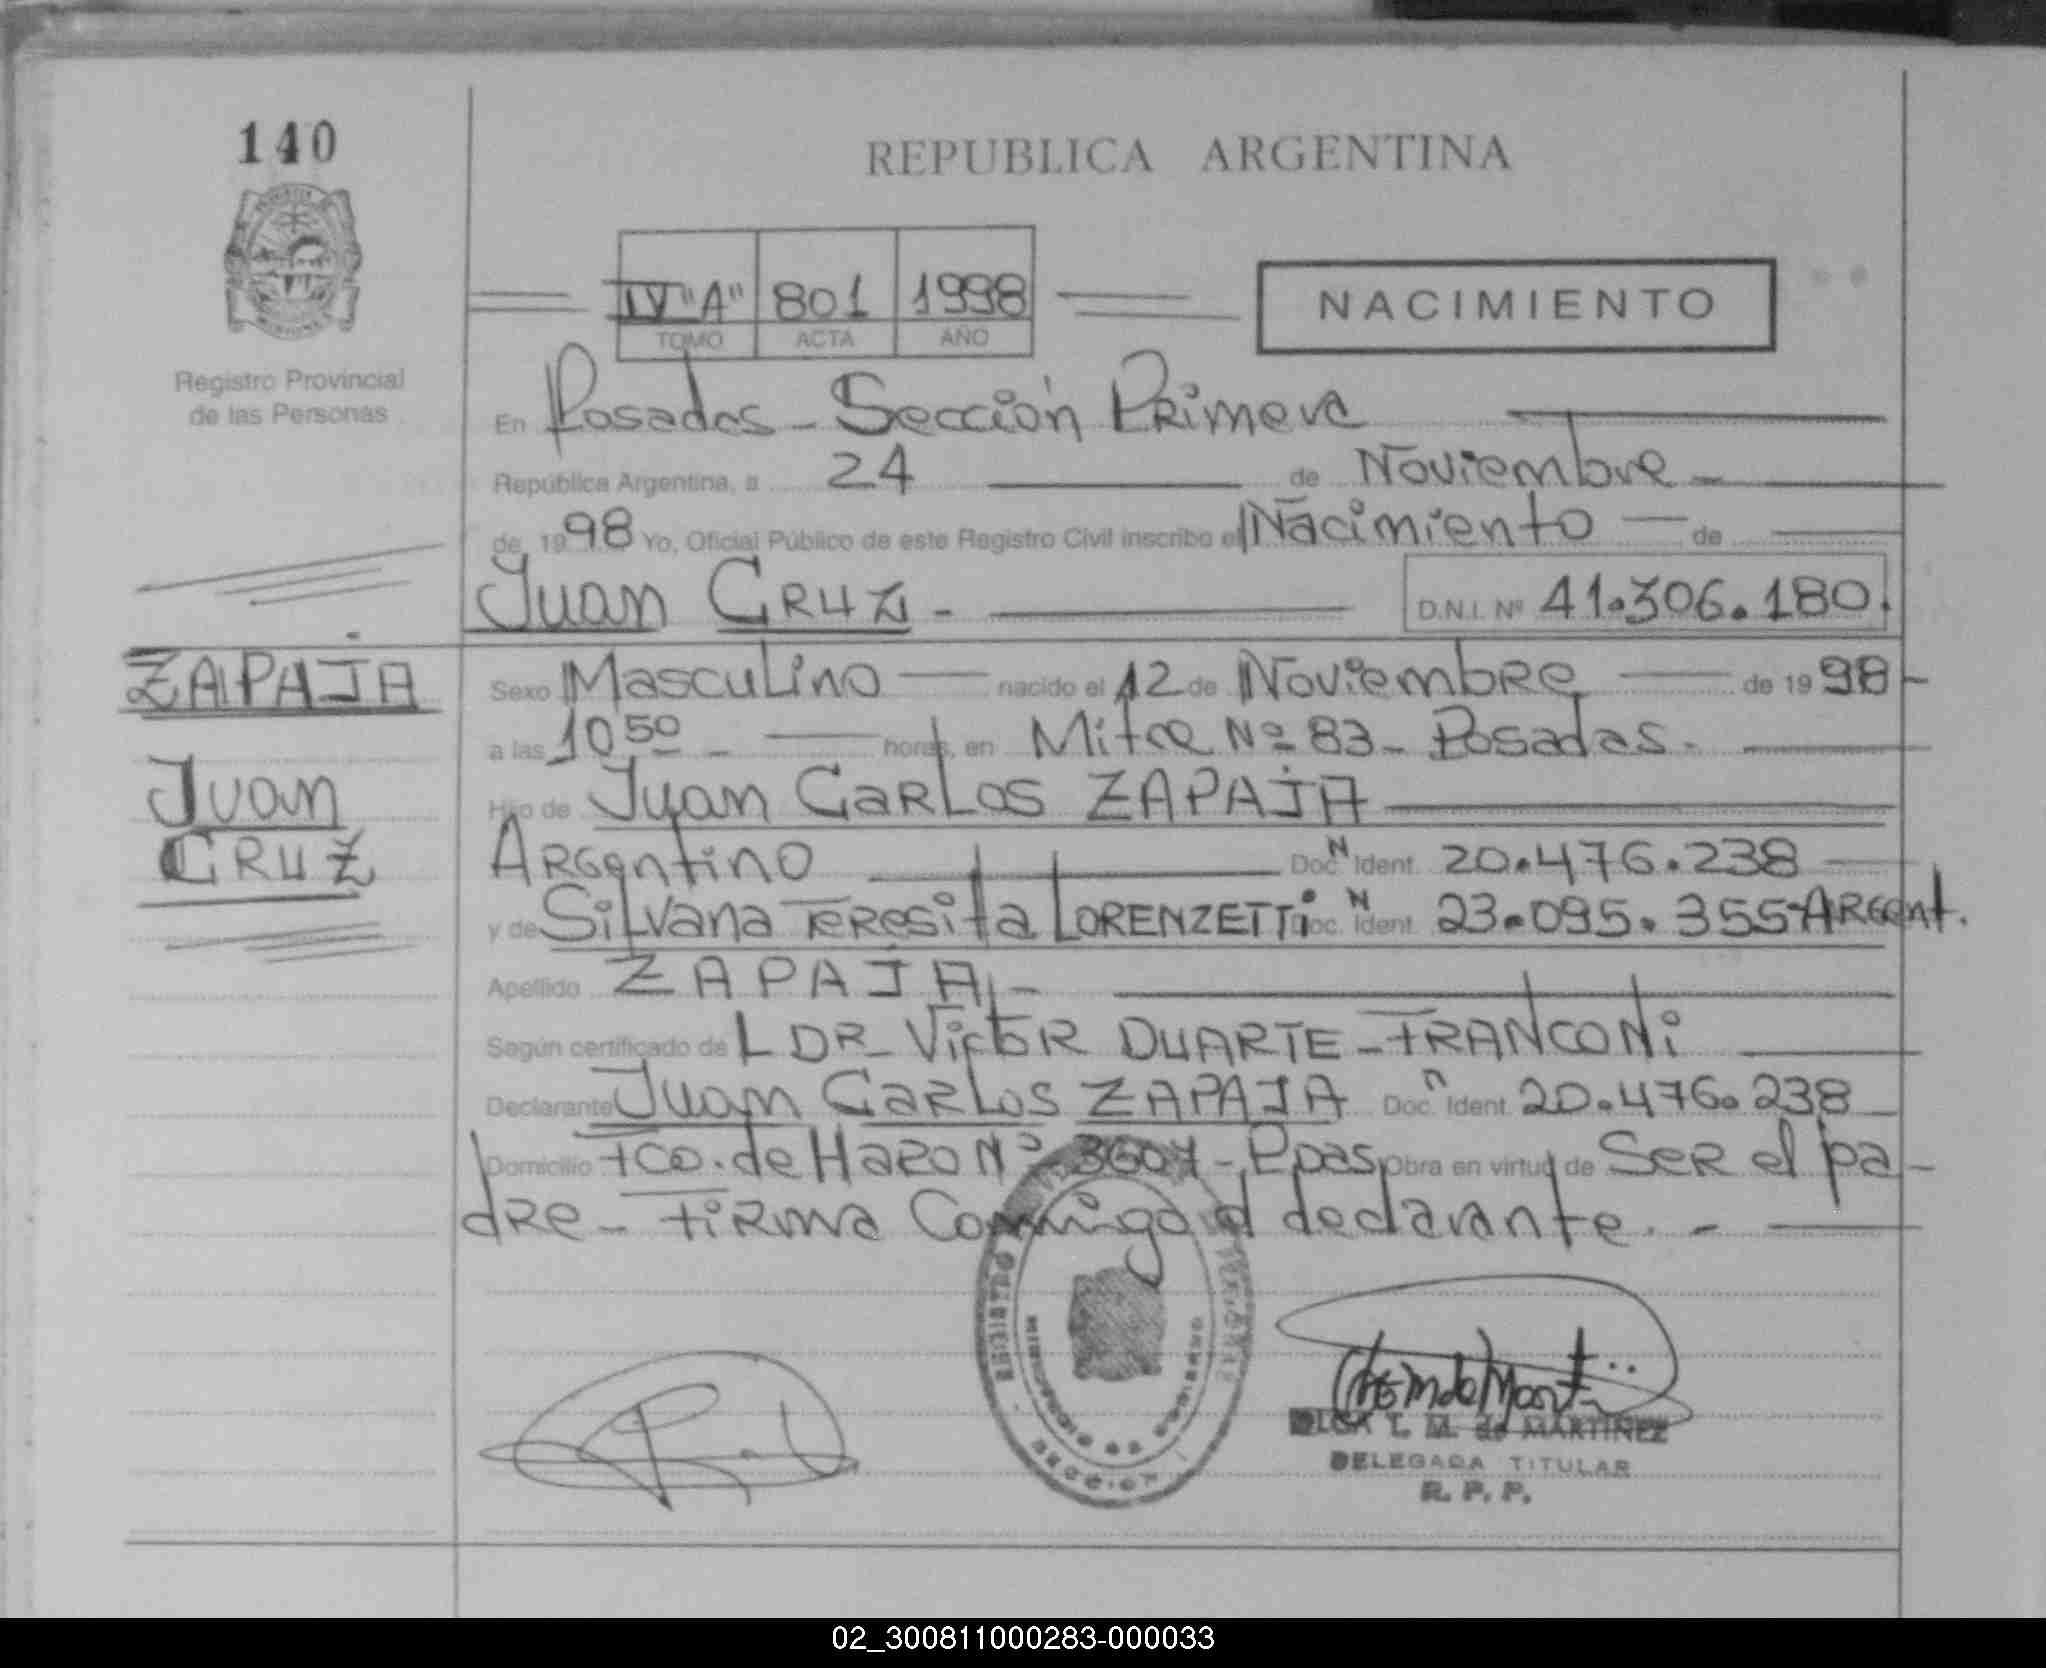 140
REPUBLICA ARGENTINA
IV "A" 801 1998
TOMO ACTA AÑO
NACIMIENTO
Registro Provincial
de las Personas
En Posadas - Sección Primera
República Argentina, a 24 de Noviembre -
de 1998 Yo, Oficial Público de este Registro Civil inscribo el Nacimiento - de
Juan CRUZ - D.N.I. Nº 41.306.180.
ZAPAJA
Juan
CRUZ
Sexo Masculino - nacido el 12 de Noviembre - de 1998 -
a las 10 50 - horas, en Mitre Nº 83 - Posadas -
Hijo de Juan Carlos ZAPAJA
Argentino Doc N Ident. 20.476.238
y de Silvana Teresita LORENZETTi Doc. N Ident. 23.095.355 Argent.
Apellido ZAPAJA -
Según certificado de LDR - Victor DUARTE - FRANCONi
Declarante Juan Carlos ZAPAJA Doc. n Ident. 20.476.238
Domicilio Fco. de Haro Nº 3607 - Pdas, Obra en virtud de Ser el pa-
dre - Firma Conmigo el declarante. -
REGISTRO
SECCION 1
OLGA T. M. de MARTINEZ
DELEGADA TITULAR
R. P. P.
02_300811000283-000033